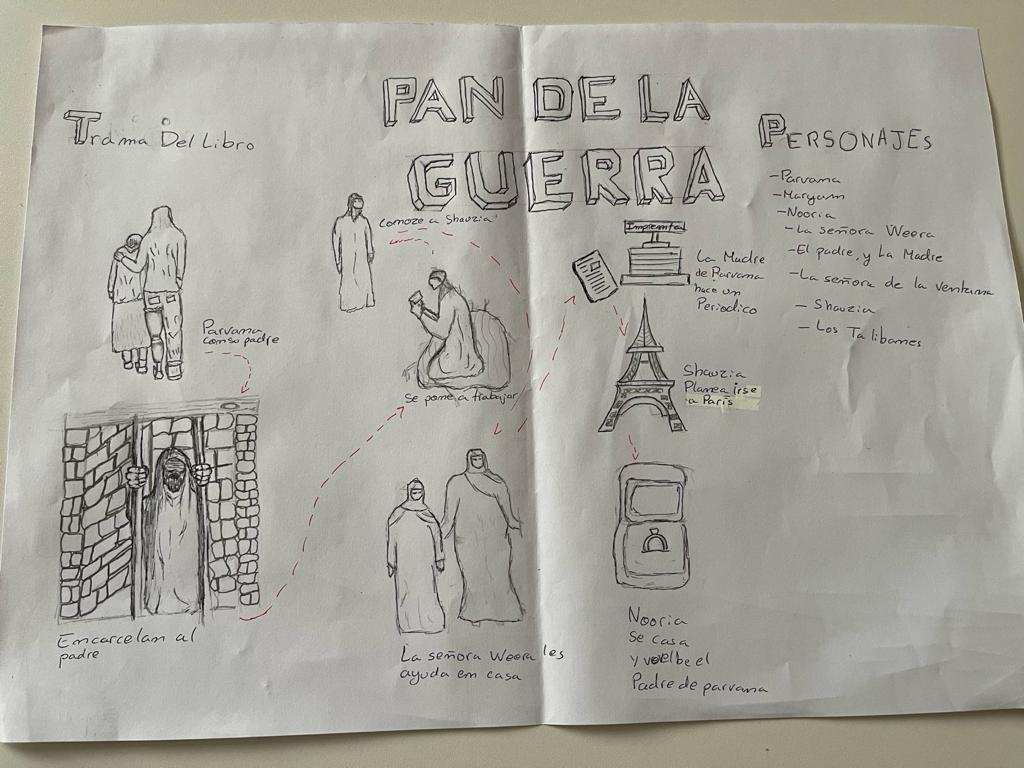 PAN DE LA
GUERRA
Trama Del Libro
Parvana
con su padre
Encarcelan al
padre
Se pone a trabajar
Conoze a Shauzia
La señora Weera les
ayuda en casa
Imprenta
La Madre
de Parvana
hace un
Periodico
Shauzia
Planea irse
a París
Nooria
Se casa
y vuelbe el
Padre de parvana
PERSONAJES
-Parvana
-Maryam
-Nooria
-La señora Weera
-El padre, y La Madre
-La señora de la ventana
- Shauzia
- Los Talibanes